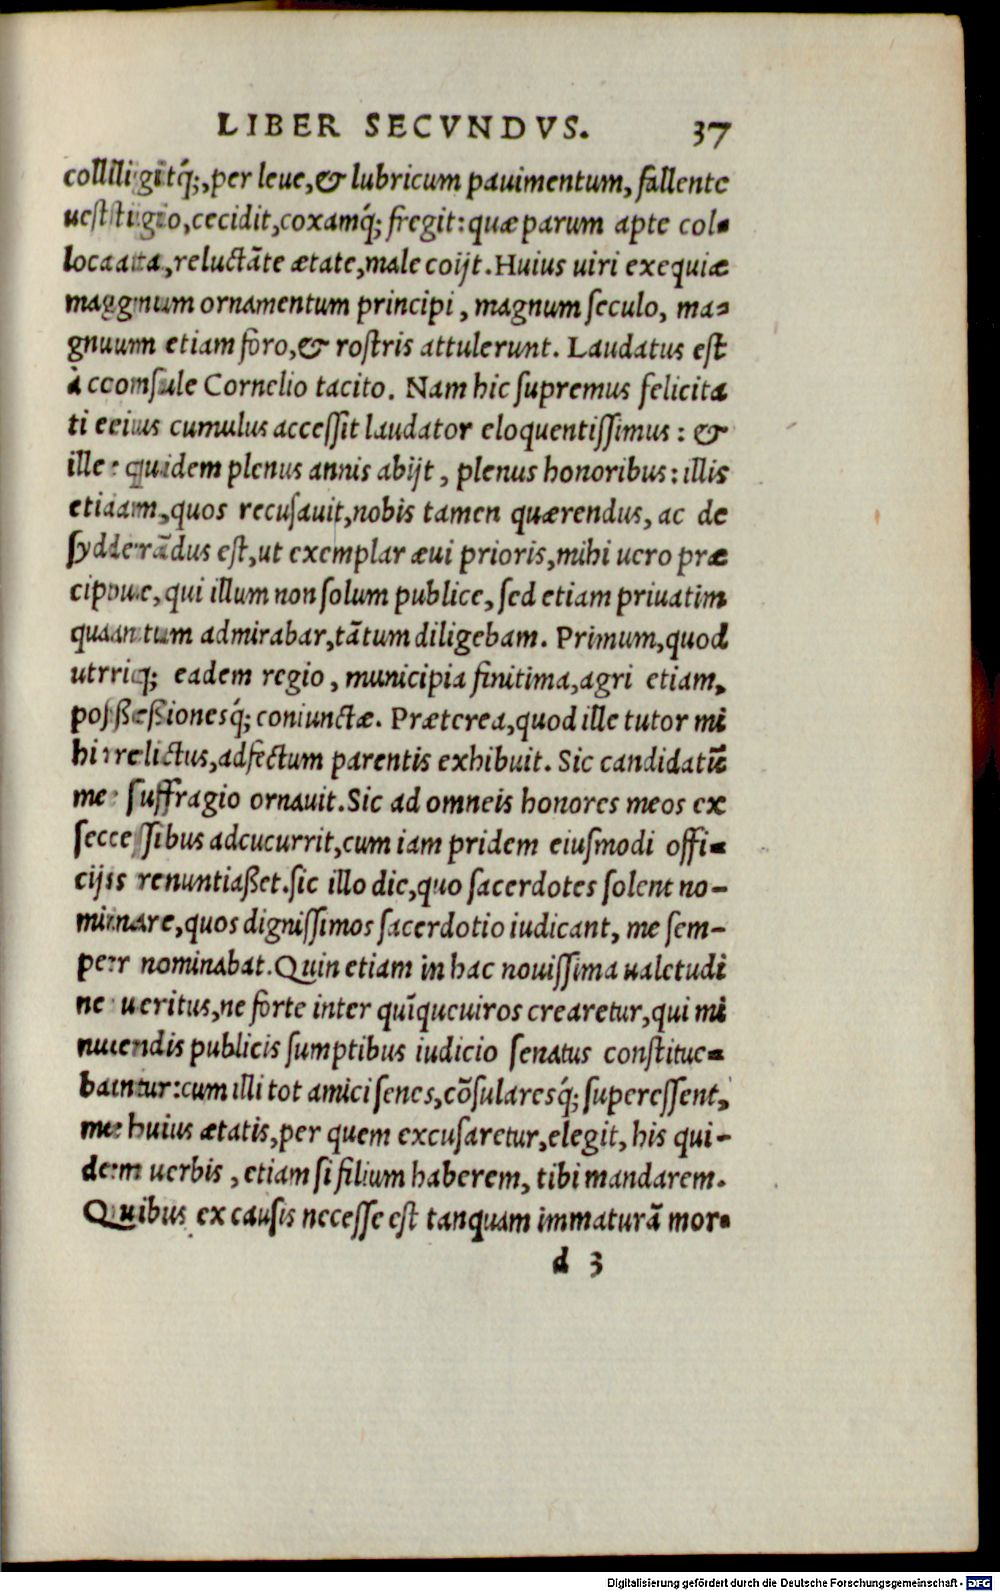 LIBER SECVNDVS. 37
colligitq́;, per leue, & lubricum pauimentum, fallente
uestigio, cecidit, coxamq́; fregit: quæ parum apte col-
locata, reluctāte ætate, male coijt. Huius uiri exequiæ
magnum ornamentum principi, magnum seculo, ma-
gnum etiam foro, & rostris attulerunt. Laudatus est
à consule Cornelio tacito. Nam hic supremus felicita
ti eius cumulus accessit laudator eloquentissimus: &
ille quidem plenus annis abijt, plenus honoribus: illis
etiam, quos recusauit, nobis tamen quærendus, ac de
syderādus est, ut exemplar æui prioris, mihi uero præ
cipue, qui illum non solum publice, sed etiam priuatim
quantum admirabar, tātum diligebam. Primum, quod
utriq; eadem regio, municipia finitima, agri etiam,
possessionesq́; coniunctæ. Præterea, quod ille tutor mi
hi relictus, adfectum parentis exhibuit. Sic candidatū
me suffragio ornauit. Sic ad omneis honores meos ex
secessibus adcucurrit, cum iam pridem eiusmodi offi-
cijs renuntiaßet. sic illo die, quo sacerdotes solent no-
minare, quos dignissimos sacerdotio iudicant, me sem-
per nominabat. Quin etiam in hac nouissima ualetudi
ne ueritus, ne forte inter quīqueuiros crearetur, qui mi
nuendis publicis sumptibus iudicio senatus constitue-
bantur: cum illi tot amici senes, cōsularesq́; superessent,
me huius ætatis, per quem excusaretur, elegit, his qui-
dem uerbis, etiam si filium haberem, tibi mandarem.
Quibus ex causis necesse est tanquam immaturā mor-
d 3
Digitalisierung gefördert durch die Deutsche Forschungsgemeinschaft - DFG